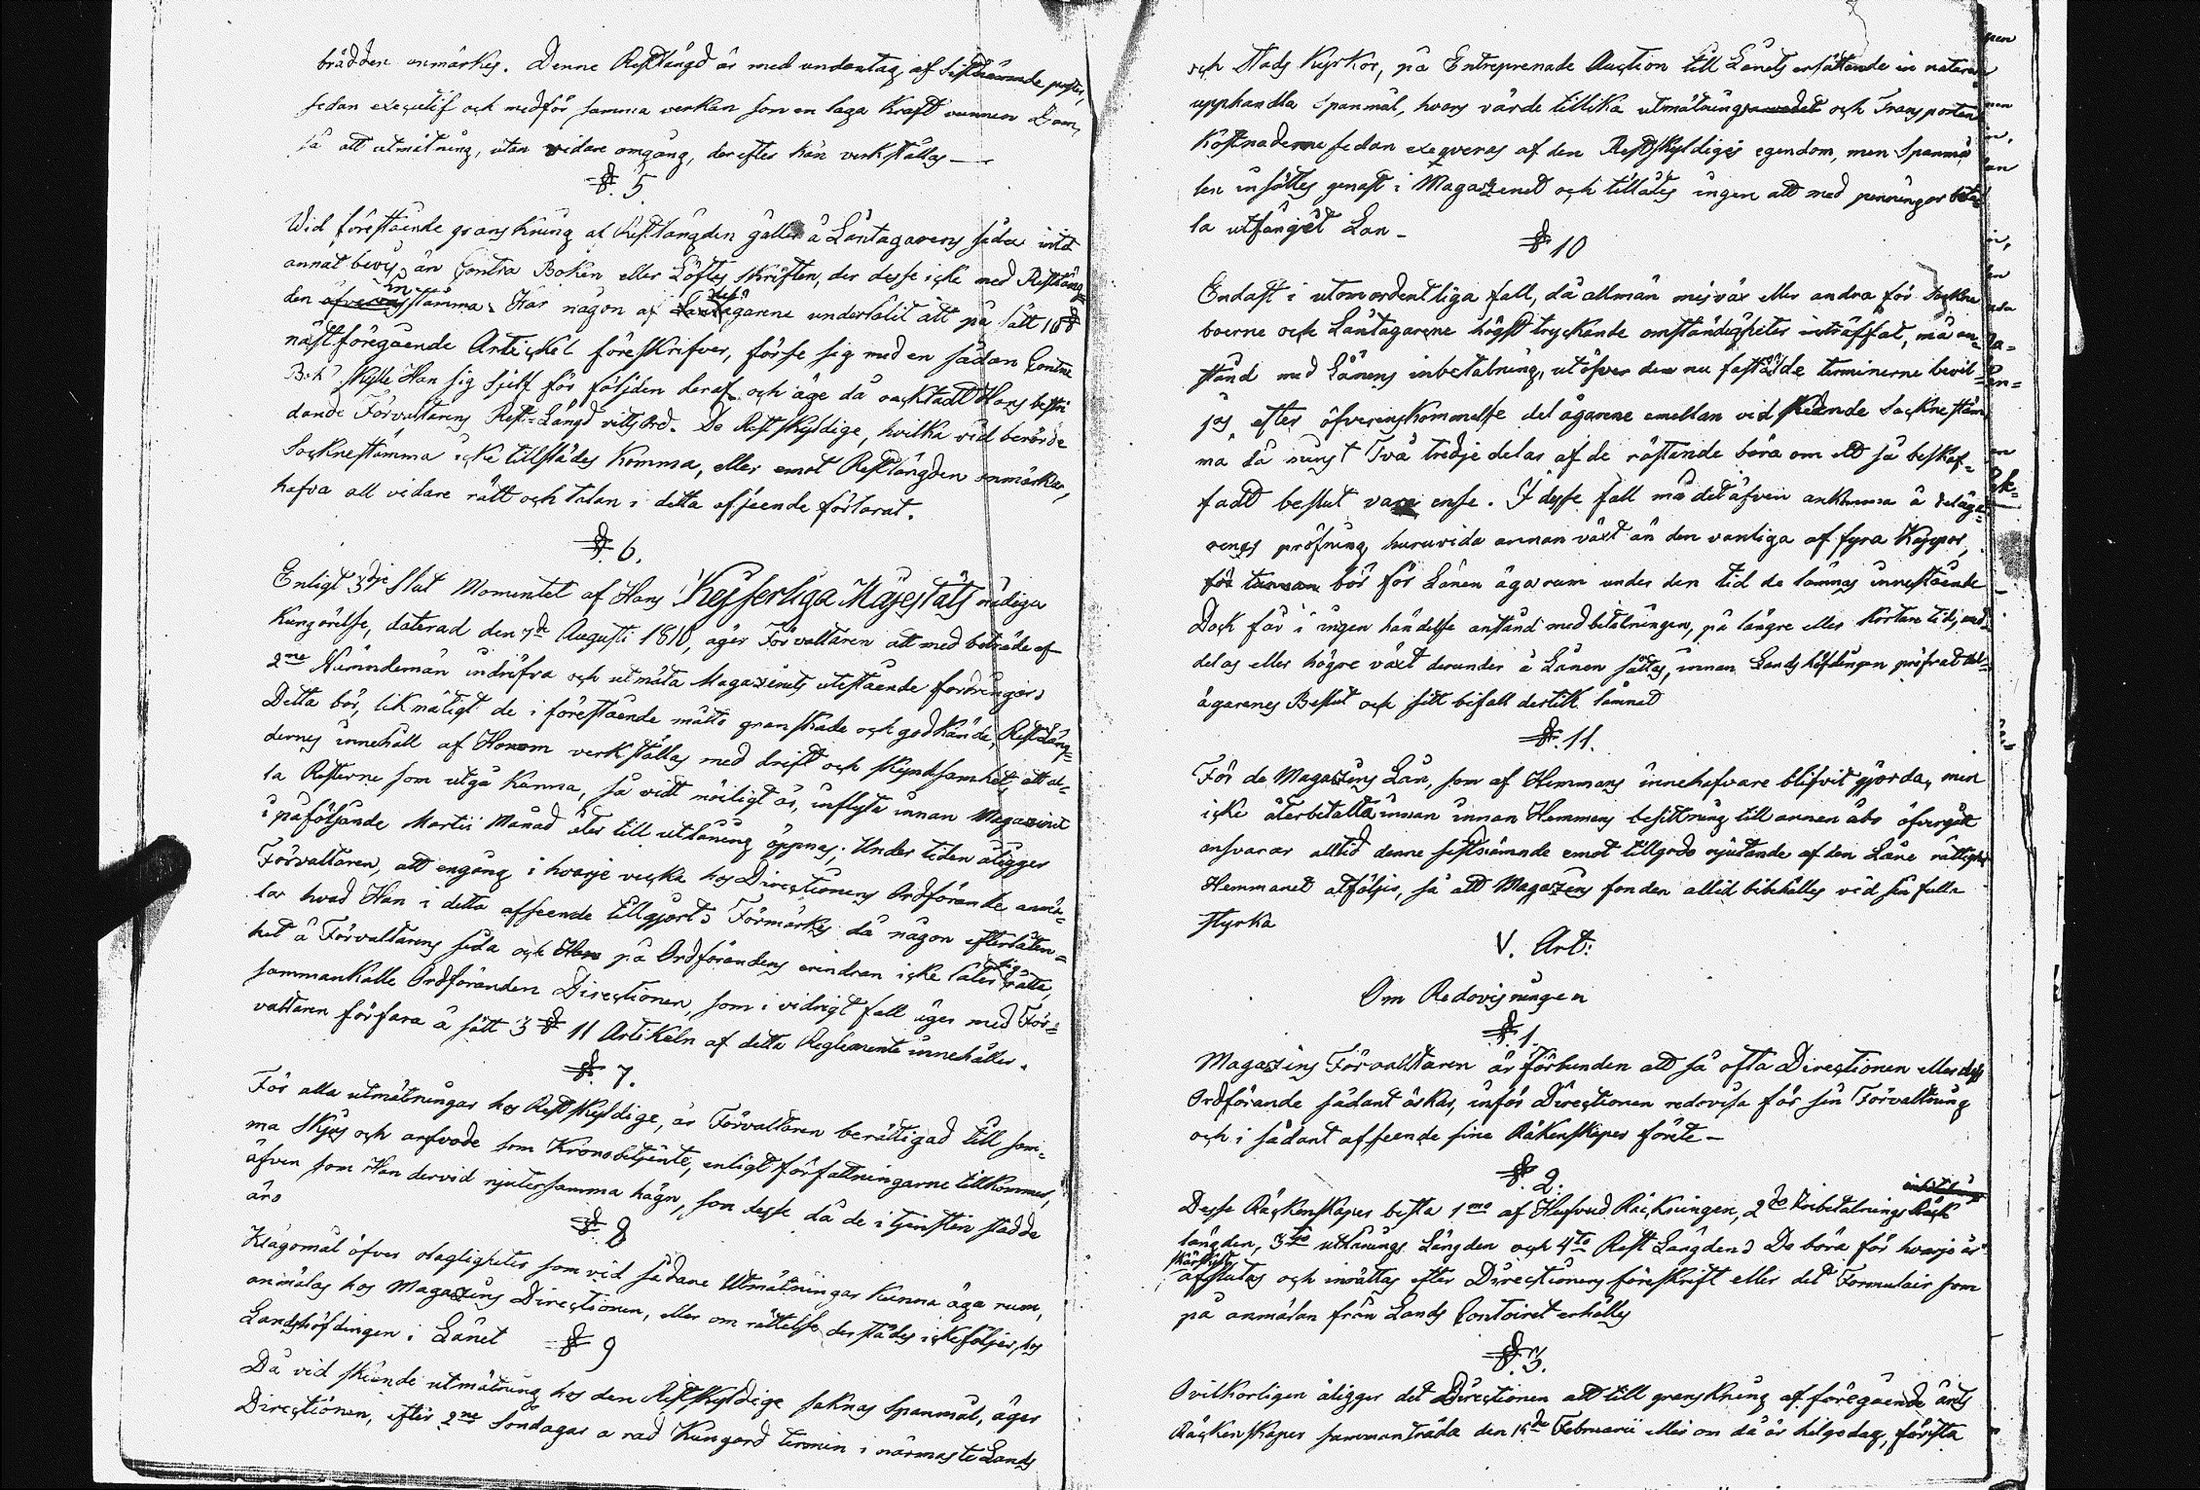 brädden anmärkes. Denne Restlängd är med undantag af sistnämnde poster,
sedan executif och medför samma verkan som en laga Kraft vunnen Dom,
så att utmätning, utan vidare omgång, derefter kan verkställas —
§. 5
Wid förestående granskning af Restlängden gäller å Låntagarens sida intet
annat bevis, än Contra Boken eller Löftes skriften, der desse icke med Restläng-
den instämma. Har någon af Låntagarene underlåtit att på sätt 10 §
nästföregående Artickel föreskrifver, förse sig med en sådan Contra
Bok skylle Han sig sjelf för följden deraf och äge då oacktadt Hans bestri
dande Förvaltarens Rest-Längd vitsord. De Restskyldige, hvilka vid berörde
Socknestämma icke tillstädes komma, eller emot Restlängden anmärka,
hafva all vidare rätt och talan i detta afseende förlorat.
§. 6.
Enligt 3dje slut Momentet af Hans Kejserliga Majestäts nådiga
Kungörelse, daterad den 7de Augusti 1810, äger Förvaltaren att med biträde af
2ne Nämndemän indrifva och utmäta Magazinets utestående fordringar.
Detta bör, likmätigt de i förestående måtto granskade och godkände, Restläng-
dernes innehåll af Honom verkställas med drift och skyndsamhet, att al-
la Resterne som utgå kunna, så vidt möiligt är, inflyta innan Magazinet
i påföljande Martii Månad åter till utlåning öppnas; Under tiden åligger
Förvaltaren, att engång i hvarje vecka hos Directionens Ordförande anmä-
la hvad Han i detta afseende tillgjort. Förmärkes då någon efterlåten-
het å Förvaltarens sida och på Ordförandens erindran icke låter sig rätta,
sammankalle Ordföranden Directionen, som i vidrigt fall äger med För-
valtaren förfara å sätt 3 § 11 Artikeln af detta Reglemente innehåller.
§. 7.
För alla utmätningar hos Restskyldige, är Förvaltaren berättigad till sam-
ma skjus och arfvode som Kronobetjente, enligt författningarne tillkommer,
äfven som Han dervid njuter samma hägn, som desse då de i tjensten stadde
äro
§ 8
Klagomål öfver olagligheter som vid sådane Utmätningar kunna äga rum,
anmälas hos Magazins Directionen, eller om rättelse derstädes icke följer, hos
Landshöfdingen i Länet
§ 9
Då vid skeende utmätning hos den Restskyldige saknas Spanmål, äger
Directionen, efter 2ne Söndagar a rad Kungord termin i närmaste Lands
och Stads Kyrkor, på Entreprenade Auction till Lånets ersättande in natura
upphandla Spanmål, hvars värde tillika utmätning och Transporten
Kostnaderne sedan exeqveras af den Restskyldiges egendom, men Spanmå
len insättes genast i Magazinet och tillåtes ingen att med penningar beta
la utfånget Lån -
§ 10
Endast i utomordentliga fall, då allmän misväx eller andra för Sockne
boerne och Låntagarene högst tryckande omständigheter inträffat, må an-
stånd med Lånens inbetalning, utöfver den nu fastställde terminerne bevil-
jas, efter öfverenskommelse delägarene emellan vid skeende Sockneställ
ma då minst Två tredjedelar af de röstande böra om ett så beskaf-
fadt beslut vara ense. I desse fall må det äfven ankomma å deläga-
renes pröfning huruvida annan växt än den vanliga af fyra Kappor,
bör för Lånen äga rum under den tid de lämnas innestående
Dock får i ingen händelse anstånd med betalningen, på längre eller kortare tid, med
delas eller högre växt derunder å Lånen sättas, innan Landshöfdingen pröfvat del-
ägarenes Beslut och sitt bifall dertill lämnat
§. 11.
För de Magazins Lån, som af Hemmans innehafvare blifvit gjorda, men
icke återbetalta innan innan Hemmans besittning till annan åbo öfvergått
ansvarar alltid denne sistnämnde emot tillgodo njutande af den Låne rättighet
Hemmanet åtföljer, så att Magazins fonden altid bibehålles vid sin fulla
styrka
V. Art:
Om Redovisningen
§. 1.
Magazins Förvaltaren är förbunden att så ofta Directionen eller dess
Ordförande sådant äskar, inför Directionen redovisa för sin Förvaltning
och i sådant afseende sine Räkenskaper förete —
§. 2.
Desse Räckenskaper bestå 1mo af Hufvud Räckningen, 2do Inbetalnings
längden, 3tio utlånings Längden och 4to Rest Längden. De böra för hvarje år
särskildt
afslutas och inrättas efter Directionens föreskrift eller det Formulair som
på anmälan från Lands Contoiret erhålles
§. 3.
Ovilkorligen åligger det Directionen att till granskning af föregående årets
Räckenskaper sammanträda den 15de Februarii eller om då är helgedag, första